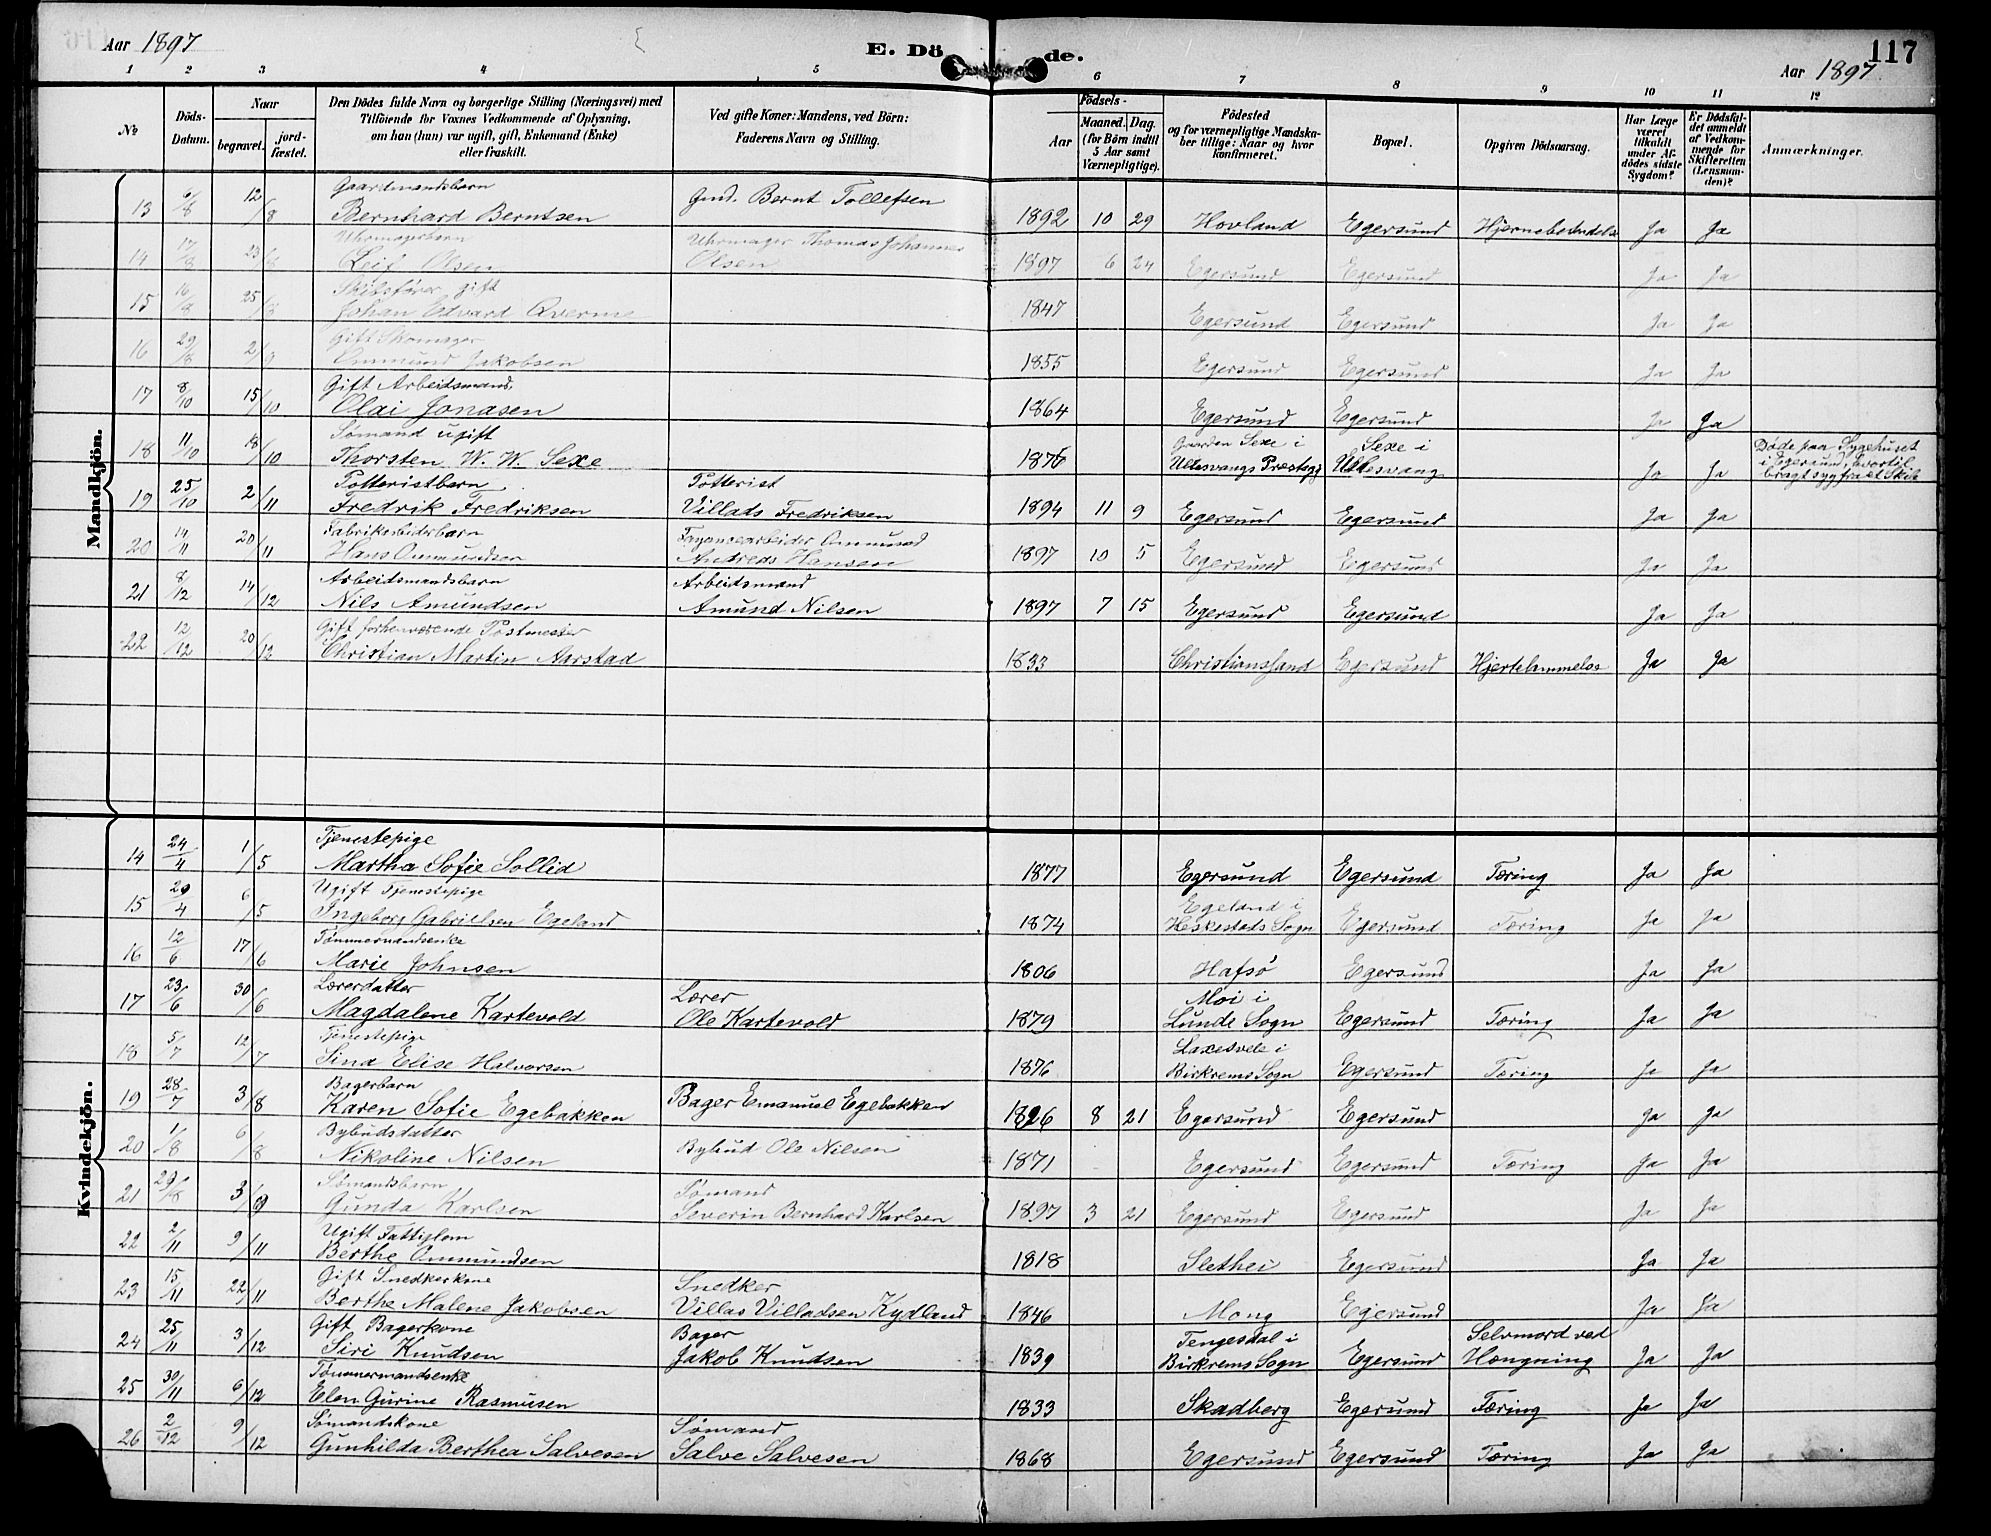 Aar 1897
E. Dö de.
Aar 1897
117
1 2 3 4 5 6 7 8 9 10 11 12
№
Döds-Datum.
Naar
begravet.
jord-fæstet.
Den Dödes fulde Navn og borgerlige Stilling (Næringsvei) med
Tilföiende for Voxnes Vedkommende af Oplysning,
om han (hun) var ugift, gift, Enkemand (Enke)
eller fraskilt.
Ved gifte Koner: Mandens, ved Börn:
Faderens Navn og Stilling.
Födsels-
Aar
Maaned. Dag.
(for Börn indtil
5 Aar samt
Værnepligtige).
Födested
og for værnepligtige Mandska-
ber tillige: Naar og hvor
konfirmeret.
Bopæl.
Opgiven Dödsaarsag.
Har Læge
været
tilkaldt
under Af-
dödes sidste
Sygdom?
Er Dödsfal-
det anmeldt
af Vedkom-
mende for
Skifteretten
(Lensman-
den)?
Anmærkninger.
Mandkjön.
Gaardmandsbarn Gmd. Bernt Tollefsen
13 6/8 12/8 Bernhard Berntsen 1892 10 29 Hovland Egersund Ja Ja
Uhrmagerbarn Uhrmager Thomas Johannes
14 17/8 23/8 Leif Olsen Olsen 1897 6 24 Egersund Egersund Ja Ja
Skibsfører gift
15 25/8 Johan Edvard 1847 Egersund Egersund Ja Ja
Gift Skomager
16 29/8 2/9 Ommund Jakobsen 1855 Egersund Egersund Ja Ja
Gift Arbeidsmand
17 8/10 15/10 Olai Jonasen 1864 Egersund Egersund Ja Ja
Sømand ugift Gaarden Sexe i Sexe i Døde paa Sygehuset
18 11/10 18/10 Thorsten W. W. Sexe 1876 Ullesvangs Præstegj Ullesvang Ja Ja i Egersund, hvortil
bragt syg fra et Skib
Potteristbarn Potterist
19 25/10 2/11 Fredrik Fredriksen Villads Fredriksen 1894 11 9 Egersund Egersund Ja Ja
Fabrikarbidrbarn Fayancearbeider Ommund
20 14/11 20/11 Hans Ommundsen Andreas Hansen 1897 10 5 Egersund Egersund Ja Ja
Arbeidsmandsbarn Arbeidsmand
21 8/12 14/12 Nils Amundsen Amund Nilsen 1897 7 15 Egersund Egersund Ja Ja
Gift forhenværende Postmester
22 12/12 20/12 Christian Martin Aarstad 1833 Christianssand Egersund Hjertelammelse Ja Ja
Kvindekjön.
Tjenestepige
14 24/4 1/5 Martha Sofie Sollid 1877 Egersund Egersund Tæring Ja Ja
Ugift Tjenestepige Egeland i
15 29/4 6/5 Ingeborg Gabrielsen Egeland 1874 Heskestads Sogn Egersund Tæring Ja Ja
Tømmermandsenke
16 12/6 17/6 Marie Johnsen 1806 Hafsø Egersund Ja Ja
Lærerdatter Lærer Moi i
17 23/6 30/6 Magdalene Kartevold Ole Kartevold 1879 Lunde Sogn Egersund Tæring Ja Ja
Tjenestepige Laxesvele i
18 5/7 12/7 Sina Elise Halvorsen 1876 Birkrems Sogn Egersund Tæring Ja Ja
Bagerbarn
19 28/7 3/8 Karen Sofie Egebakken Bager Emanuel Egebakken 8 21 Egersund Egersund Ja Ja
Bybudsdatter
20 1/8 6/8 Nikoline Nilsen Bybud Ole Nilsen 1871 Egersund Egersund Tæring Ja Ja
Sømandsbarn Sømand
21 29/8 3/9 Gunda Karlsen Severin Bernhard Karlsen 1897 3 21 Egersund Egersund Ja Ja
Ugift Fattiglem
22 2/11 9/11 Berthe Ommundsen 1818 Slethei Egersund Ja Ja
Gift Snedkerkone Snedker
23 15/11 22/11 Berthe Malene Jakobsen Villas Villadsen Kydland 1846 Mong Egersund Ja Ja
Gift Bagerkone Bager Tengesdal i Selvmord ved
24 25/11 3/12 Siri Knudsen Jakob Knudsen 1839 Birkrems Sogn Egersund Hængning Ja Ja
Tømmermandsenke
25 30/11 6/12 Elen Gurine Rasmusen 1833 Skadberg Egersund Tæring Ja Ja
Sømandskone Sømand
26 2/12 9/12 Gunhilda Berthea Salvesen Salve Salvesen 1868 Egersund Egersund Tæring Ja Ja